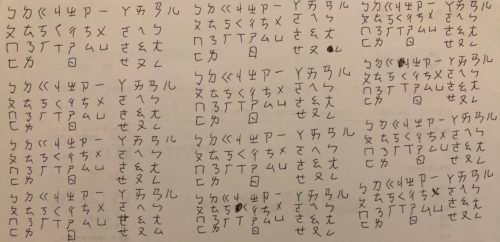 ㄅㄉㄍㄐㄓㄗㄧ ㄚㄞㄢㄦ
ㄆㄊㄎㄑㄔㄘㄨ ㄛㄟㄣ
ㄇㄋㄏㄒㄕㄙㄩ ㄜㄠㄤ
ㄈㄌ ㄖ ㄝㄡㄥ
ㄅㄉㄍㄐㄓㄗㄧ ㄚㄞㄢㄦ
ㄆㄊㄎㄑㄔㄘㄨ ㄛㄟㄣ
ㄇㄋㄏㄒㄕㄙㄩ ㄜㄠㄤ
ㄈㄌ ㄖ ㄝㄡㄥ
ㄅㄉㄍㄐㄓㄗㄧ ㄚㄞㄢㄦ
ㄆㄊㄎㄑㄔㄘㄨ ㄛㄟㄣ
ㄇㄋㄏㄒㄕㄙㄩ ㄜㄠㄤ
ㄈㄌ ㄖ ㄝㄡㄥ
ㄅㄉㄍㄐㄓㄗㄧ ㄚㄞㄢㄦ
ㄆㄊㄎㄑㄔㄘㄨ ㄛㄟㄣ
ㄇㄋㄏㄒㄕㄙㄩ ㄜㄠㄤ
ㄈㄌ ㄖ ㄝㄡㄥ
ㄅㄉㄍㄐㄓㄗㄧ ㄚㄞㄢㄦ
ㄆㄊㄎㄑㄔㄘㄨ ㄛㄟㄣ
ㄇㄋㄏㄒㄕㄙㄩ ㄜㄠㄤ
ㄈㄌ ㄖ ㄝㄡㄥ
ㄅㄉㄍㄐㄓㄗㄧ ㄚㄞㄢㄦ
ㄆㄊㄎㄑㄔㄘㄨ ㄛㄟㄣ
ㄇㄋㄏㄒㄕㄙㄩ ㄜㄠㄤ
ㄈㄌ ㄖ ㄝㄡㄥ
ㄅㄉㄍㄐㄓㄗㄧ ㄚㄞㄢㄦ
ㄆㄊㄎㄑㄔㄘㄨ ㄛㄟㄣ
ㄇㄋㄏㄒㄕㄙㄩ ㄜㄠㄤ
ㄈㄌ ㄖ ㄝㄡㄥ
ㄅㄉㄍㄐㄓㄗㄧ ㄚㄞㄢㄦ
ㄆㄊㄎㄑㄔㄘㄨ ㄛㄟㄣ
ㄇㄋㄏㄒㄕㄙㄩ ㄜㄠㄤ
ㄈㄌ ㄖ ㄝㄡㄥ
ㄅㄉㄍㄐㄓㄗㄧ ㄚㄞㄢㄦ
ㄆㄊㄎㄑㄔㄘㄨ ㄛㄟㄣ
ㄇㄋㄏㄒㄕㄙㄩ ㄜㄠㄤ
ㄈㄌ ㄖ ㄝㄡㄥ
ㄅㄉㄍㄐㄓㄗㄧ ㄚㄞㄢㄦ
ㄆㄊㄎㄑㄔㄘㄨ ㄛㄟㄣ
ㄇㄋㄏㄒㄕㄙㄩ ㄜㄠㄤ
ㄈㄌ ㄖ ㄝㄡㄥ
ㄅㄉㄍㄐㄓㄗㄧ ㄚㄞㄢㄦ
ㄆㄊㄎㄑㄔㄘㄨ ㄛㄟㄣ
ㄇㄋㄏㄒㄕㄙㄩ ㄜㄠㄤ
ㄈㄌ ㄖ ㄝㄡㄥ
ㄅㄉㄍㄐㄓㄗㄧ ㄚㄞㄢㄦ
ㄆㄊㄎㄑㄔㄘㄨ ㄛㄟㄣ
ㄇㄋㄏㄒㄕㄙㄩ ㄜㄠㄤ
ㄈㄌ ㄖ ㄝㄡㄥ